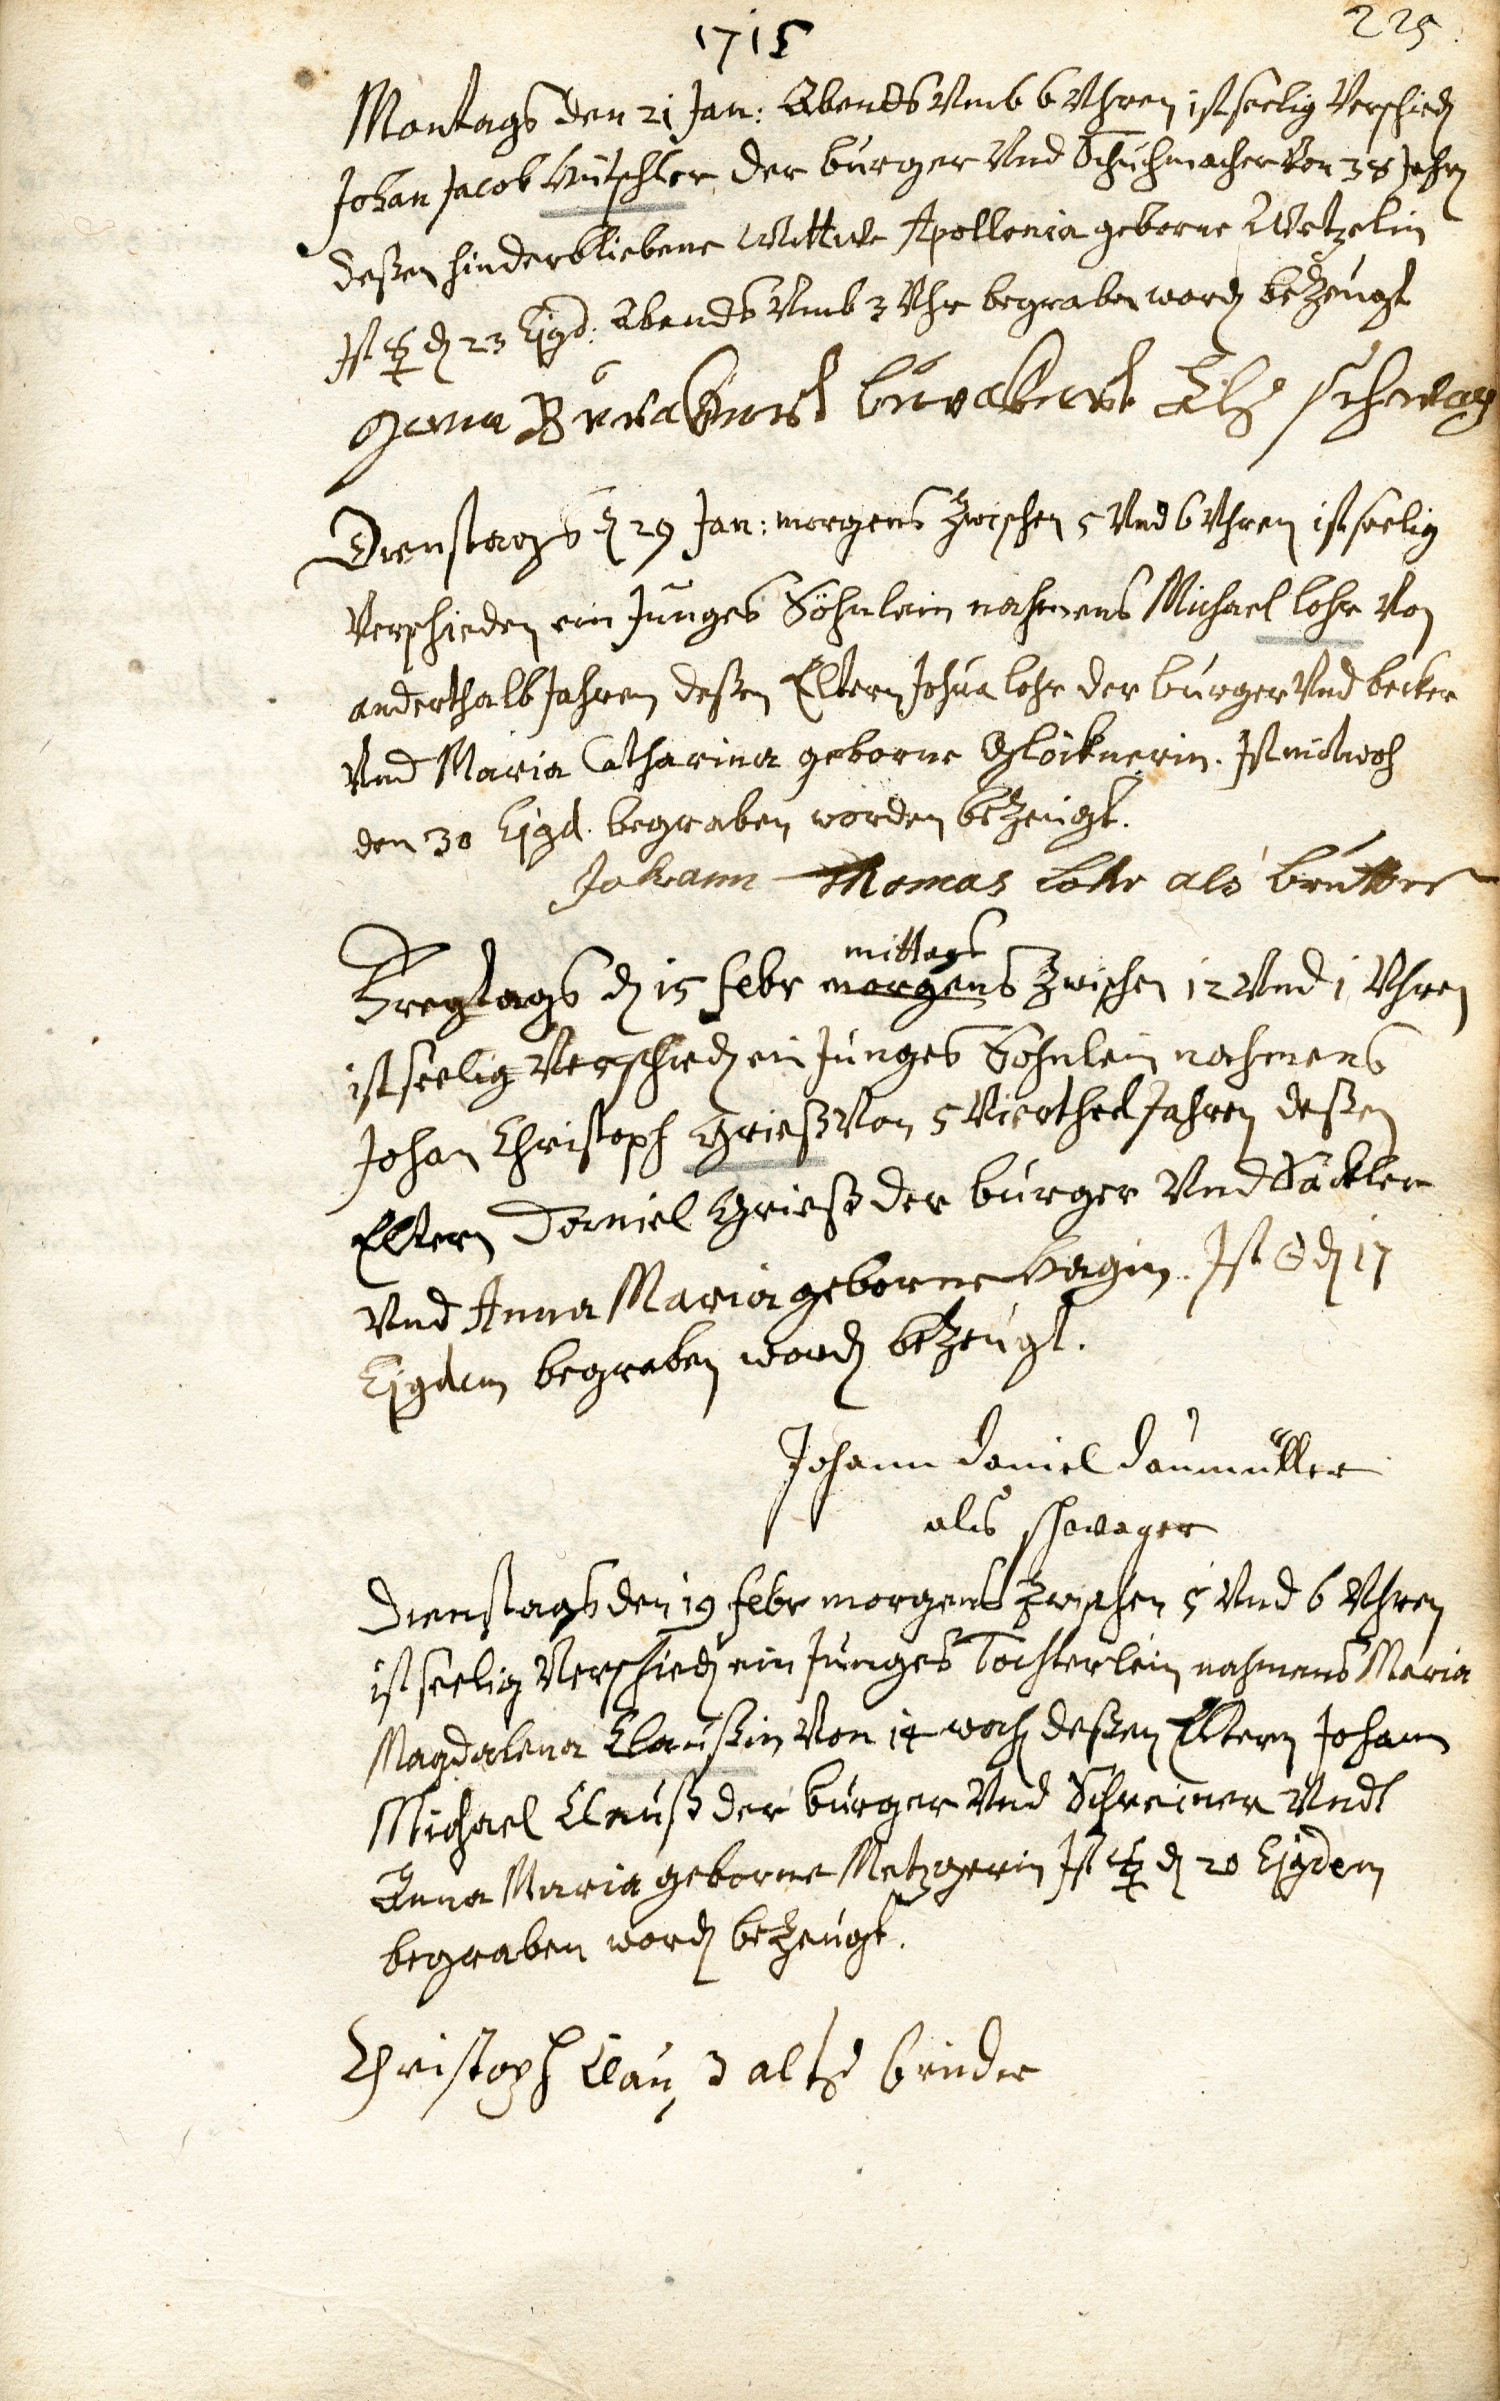 1715
225.
Montags den 21 Jan: Abends Vmb 6 Vhren ist seelig Verschied
Johan Jacob der burger Vnd Schuhmacher Von 38 Jahr
deßen hinderbliebene Wittwe Apollonia geborne Wetzelin
Ist ☿ d 23 Ejgd: Abends Vmb 3 Vhr begraben word bezeugt
schwag
Dienstags d 29 Jan: morgens zwischen 5 Vnd 6 Vhren ist seelig
Verschieden ein Junges Söhnlein nahmens Michael Lohr Von
anderthalb Jahren deßen Eltern Joshua Lohr der burger Vnd becker
Vnd Maria Catharina geborne Glöcknerin. Ist mitwoch
den 30 Ejgd. begraben worden bezeugt.
Johann Thomas Lohr als brutter
mittags
Freytags d 15 febr morgens zwischen 12 Vnd 1 Vhren
ist seelig Verschied ein Junges Söhnlein nahmens
Johan Christoph Grieß Von 5 Vierthel Jahren deßen
Eltern Daniel Grieß der burger Vnd Säckler
Vnd Anna Maria geborne Hagin. Ist ☉ d 17
Ejgdem begraben word bezeugt.
Johann Daniel Daumüller
als schwager
Dienstags den 19 febr morgens zwischen 5 Vnd 6 Vhren
ist seelig Verschied ein Junges Töchterlein nahmens Maria
Magdalena Claußin Von 14 woch deßen Eltern Johann
Michael Clauß der burger Vnd Schreiner Vndt
Anna Maria geborne Metzgerin Ist ☿ d 20 Ejgdem
begraben word bezeugt.
Christoph Clau 3 alß bruder